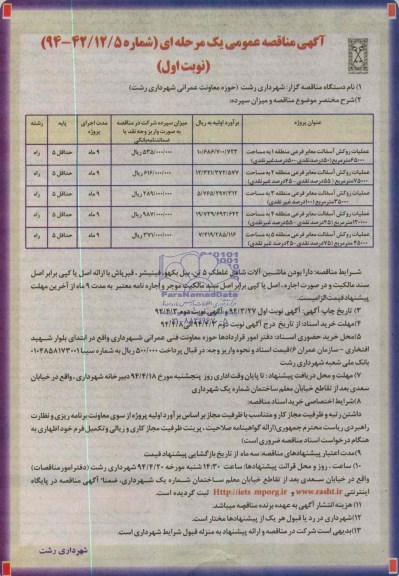 آگهی مناقصه عمومی یک مرحله ای (شماره ۵/۱۲/۴۲-۹۴)
(نوبت اول)
۱) نام دستگاه مناقصه گزار: شهرداری رشت (حوزه معاونت عمرانی شهرداری رشت)
۲) شرح مختصر موضوع مناقصه و میزان سپرده:
عنوان پروژه برآورد اولیه به ریال میزان سپرده شرکت در مناقصه به صورت واریز وجه نقد یا ضمانتنامه بانکی مدت اجرای پروژه پایه رشته
عملیات روکش آسفالت معابر فرعی منطقه ۱ به مساحت
۹ ماه حداقل ۵ راه
عملیات روکش آسفالت معابر فرعی منطقه ۲ به مساحت
۹ ماه حداقل ۵ راه
عملیات روکش آسفالت معابر فرعی منطقه ۳ به مساحت
۹ ماه حداقل ۵ راه
عملیات روکش آسفالت معابر فرعی منطقه ۴ به مساحت
۹ ماه حداقل ۵ راه
عملیات روکش آسفالت معابر فرعی منطقه ۵ به مساحت
۹ ماه حداقل ۵ راه
شرایط مناقصه: دارا بودن ماشین آلات شامل غلطک ۵ تن، بیل بکهو، فینیشر، قیرپاش با ارائه اصل یا کپی برابر اصل
سند مالکیت و در صورت اجاره، اصل یا کپی برابر اصل سند مالکیت موجر و اجاره نامه معتبر به مدت ۹ ماه از آخرین مهلت
پیشنهاد قیمت الزامیست.
۳) تاریخ چاپ آگهی: آگهی نوبت اول ۹۴/۳/۲۷ و آگهی نوبت دوم ۹۴/۴/۳
۴) مهلت خرید اسناد: از تاریخ درج آگهی نوبت دوم ۹۴/۴/۳
۵) محل خرید حضوری اسناد: دفتر امور قراردادها حوزه معاونت فنی عمرانی شهرداری واقع در ابتدای بلوار شهید
افتخاری - سازمان عمران ۶) قیمت اسناد و نحوه واریز وجه: در قبال پرداخت ۵۰۰/۰۰۰ ریال به شماره سیبا
بانک ملی شعبه شهرداری رشت
۷) مهلت و محل دریافت پیشنهاد: تا پایان وقت اداری روز پنجشنبه مورخ ۹۴/۴/۱۸ دبیرخانه شهرداری، واقع در خیابان
سعدی بعد از تقاطع خیابان معلم ساختمان شماره یک شهرداری
۸) شرایط اختصاصی خرید اسناد مناقصه:
داشتن رتبه و ظرفیت مجاز کار و متناسب با ظرفیت مجاز بر اساس برآورد اولیه پروژه از سوی معاونت برنامه ریزی و نظارت
راهبردی ریاست محترم جمهوری (ارائه گواهینامه صلاحیت، پرینت ظرفیت مجاز کاری و ریالی و تکمیل فرم خود اظهاری به
هنگام درخواست اسناد مناقصه ضروری است)
۹) مدت اعتبار پیشنهادهای مناقصه: سه ماه از تاریخ بازگشایی پیشنهاد قیمت
۱۰) ساعت، روز و محل قرائت پیشنهادها: ساعت ۱۴:۳۰ شنبه مورخه ۹۴/۴/۲۰ شهرداری رشت (دفتر امور مناقصات)
واقع در خیابان سعدی بعد از تقاطع خیابان معلم ساختمان شماره یک شهرداری، ضمنا" آگهی مناقصه در پایگاه
اینترنتی www.rasht.ir و Http://iets.mporg.ir ثبت گردیده است.
۱۱) هزینه انتشار آگهی به عهده برنده مناقصه میباشد.
۱۲) شهرداری در رد یا قبول هر یک از پیشنهادها مختار است.
۱۳) بدیهی است شرکت در مناقصه و ارائه پیشنهاد به منزله قبول شرایط شهرداری است.
شهرداری رشت
ParsNamadData